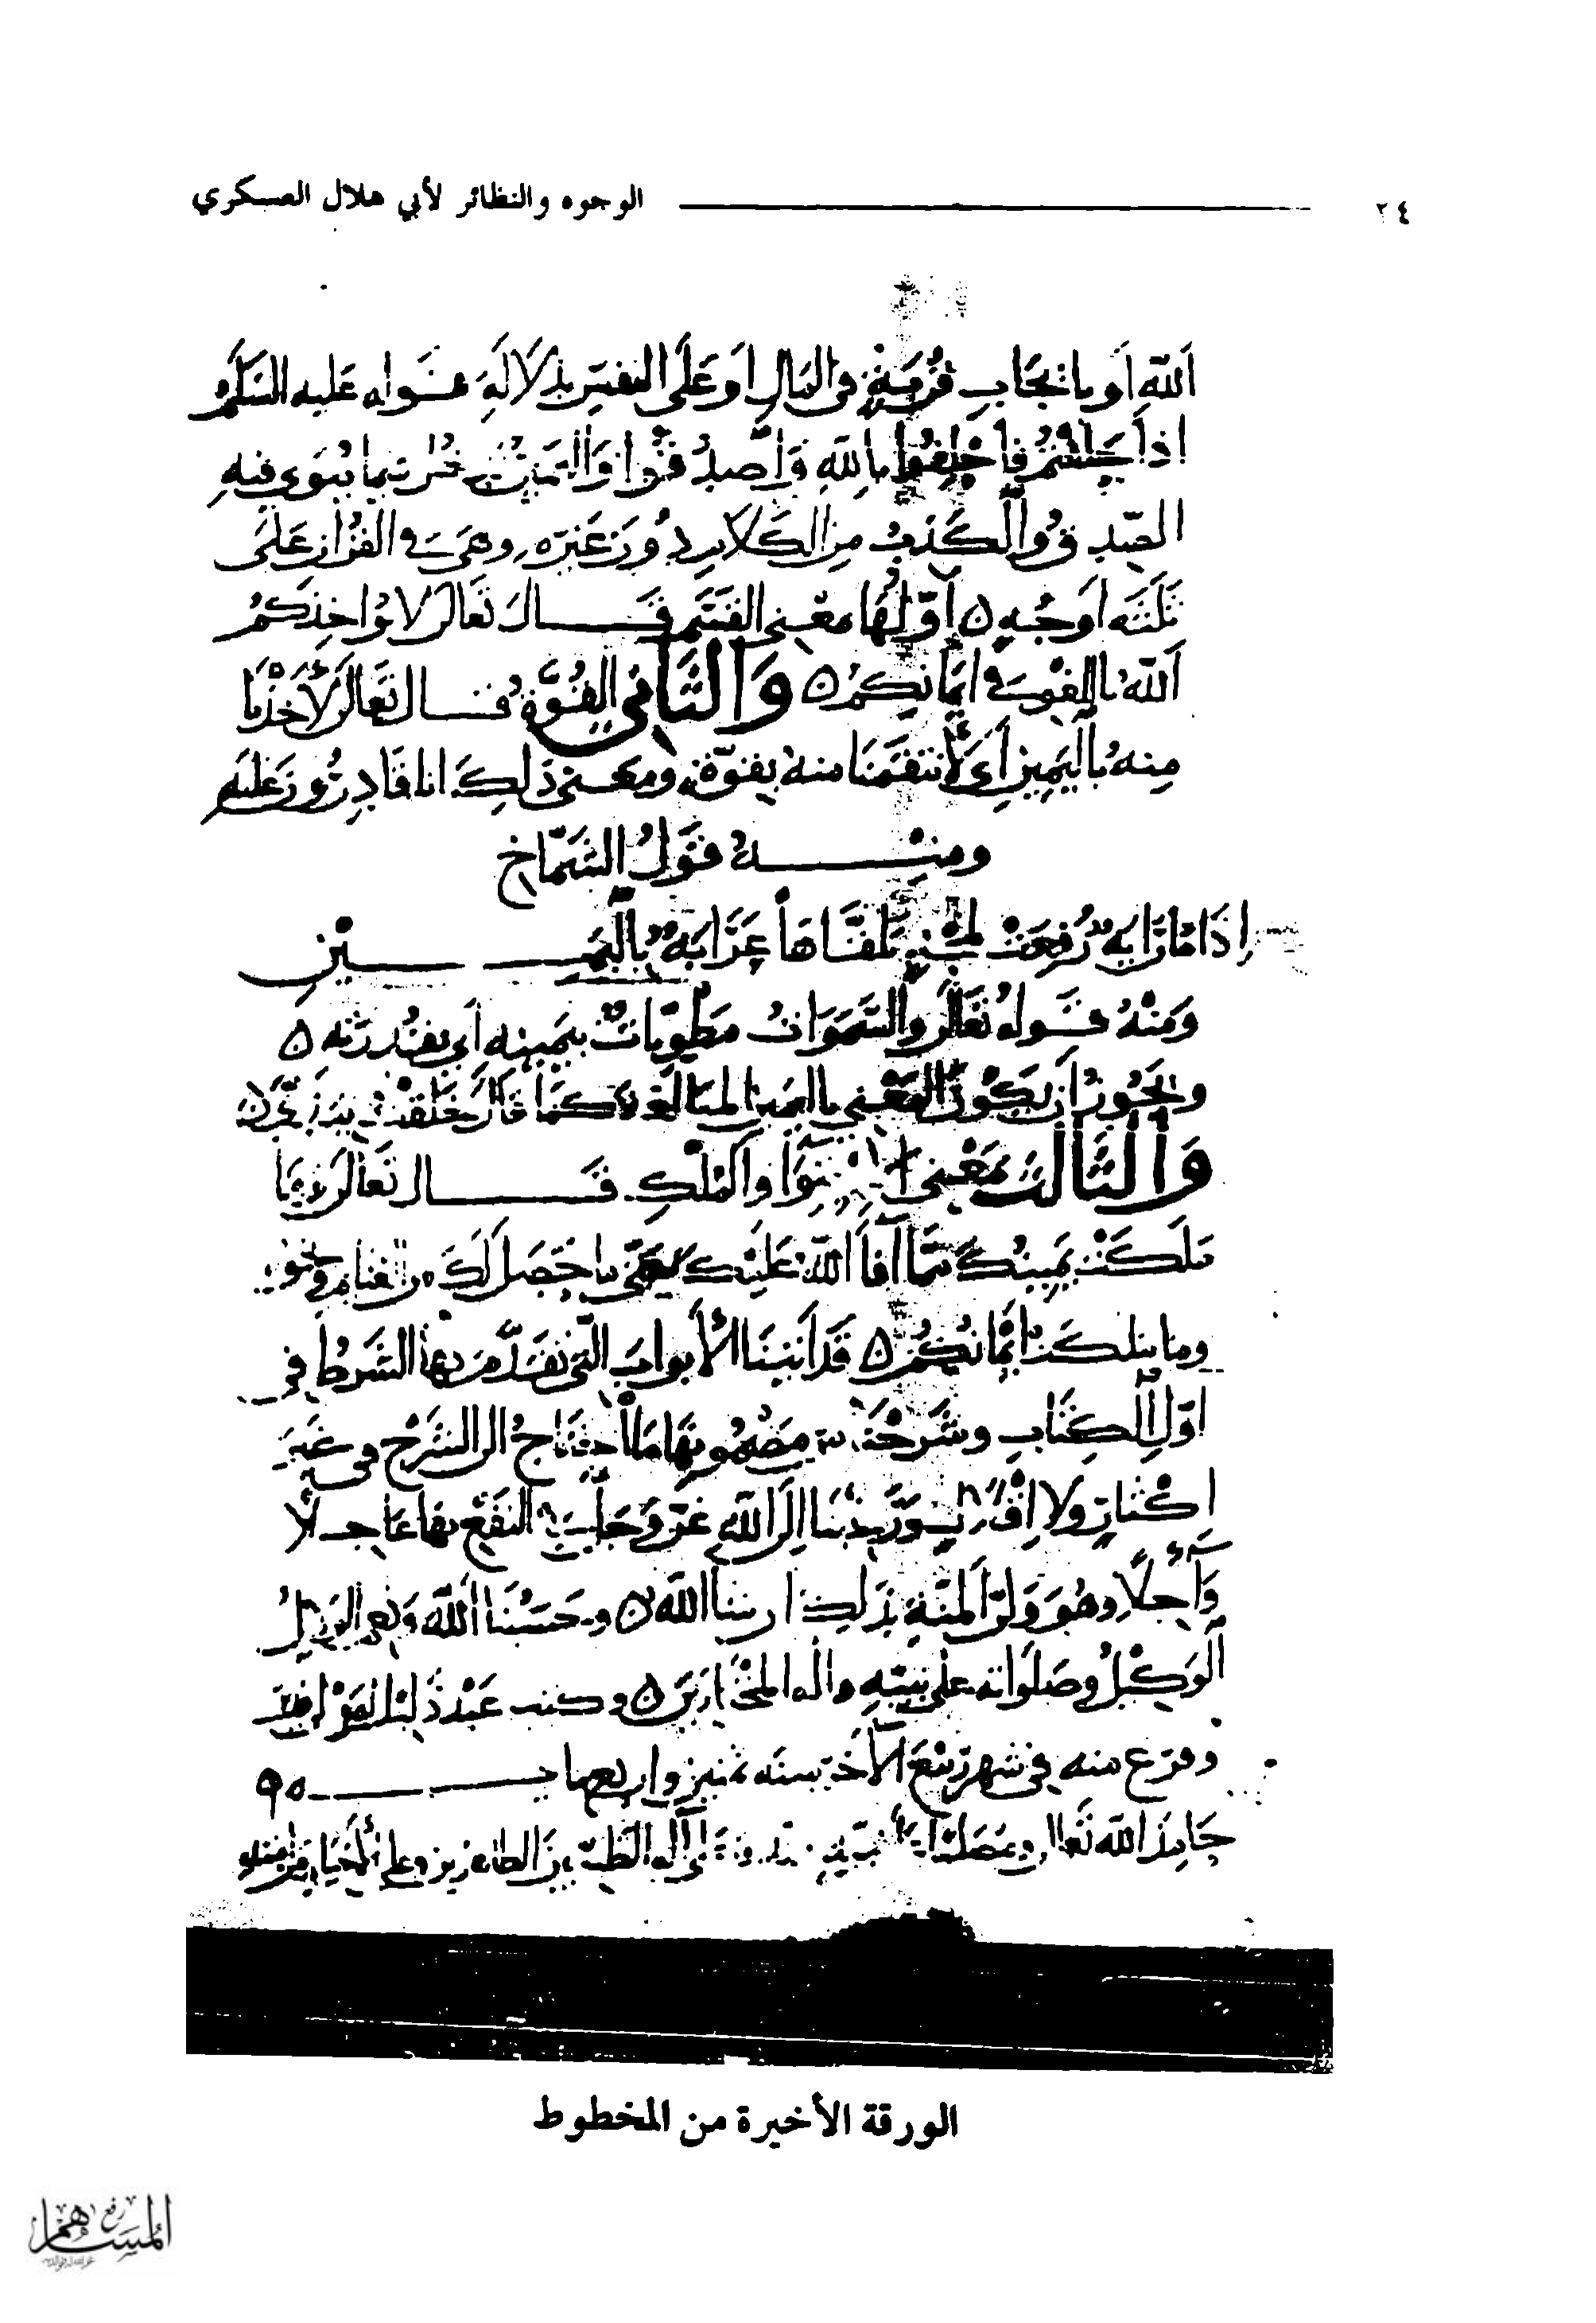 ٢٤ الوجوه والنظائر لأبي هلال العسكري
الله أو بايجاب قربة في المال أو على النفس بدلالة قوله عليه السلام
اذا حلفتم فاحلفوا بالله واصدقوا واليمين فيما ينوى فيه
الصدق والكذب من الكلام دون غيره وهي في القران على
ثلثة اوجه أولها بمعنى القسم قال تعالى لا يؤاخذكم
الله باللغو في ايمانكم والثاني القوة قال تعالى لأخذنا
منه باليمين أي لأنتقمنا منه بقوة ومعنى ذلك انا قادرون عليه
ومنه قول الشماخ
إذا ما راية رفعت لمجد تلقاها عرابة باليمين
ومنه قوله تعالى والسموات مطويات بيمينه أي بقدرته
ويجوز أن يكون المعنى باليمين المبالغة كما قال خلقت بيدي
والثالث بمعنى والملك قال تعالى وما
ملكت يمينك مما أفاء الله عليك يعني ما حصل لك من الغنايم ونحوه
وما ملكت ايمانكم قد أتينا الأبواب التي تقدم بها الشرط في
اول الكتاب وشرحنا من مضمونها ما احتاج الى الشرح في غير
اكثار ولا الى الله عز وجل النفع بها عاجلا
وآجلا وهو ولي المنة بذلك ان شا الله وحسبنا الله ونعم الوكيل
الوكيل وصلواته على نبيه واله المختارين وكتب عبد
وفرغ منه في شهر ربيع الآخر سنة ثمنين واربعماية
حامدا لله تعالى ومصليا نبيه اله الطيبين الطاهرين وعلى الأخيار من امته
الورقة الأخيرة من المخطوط
المساهم